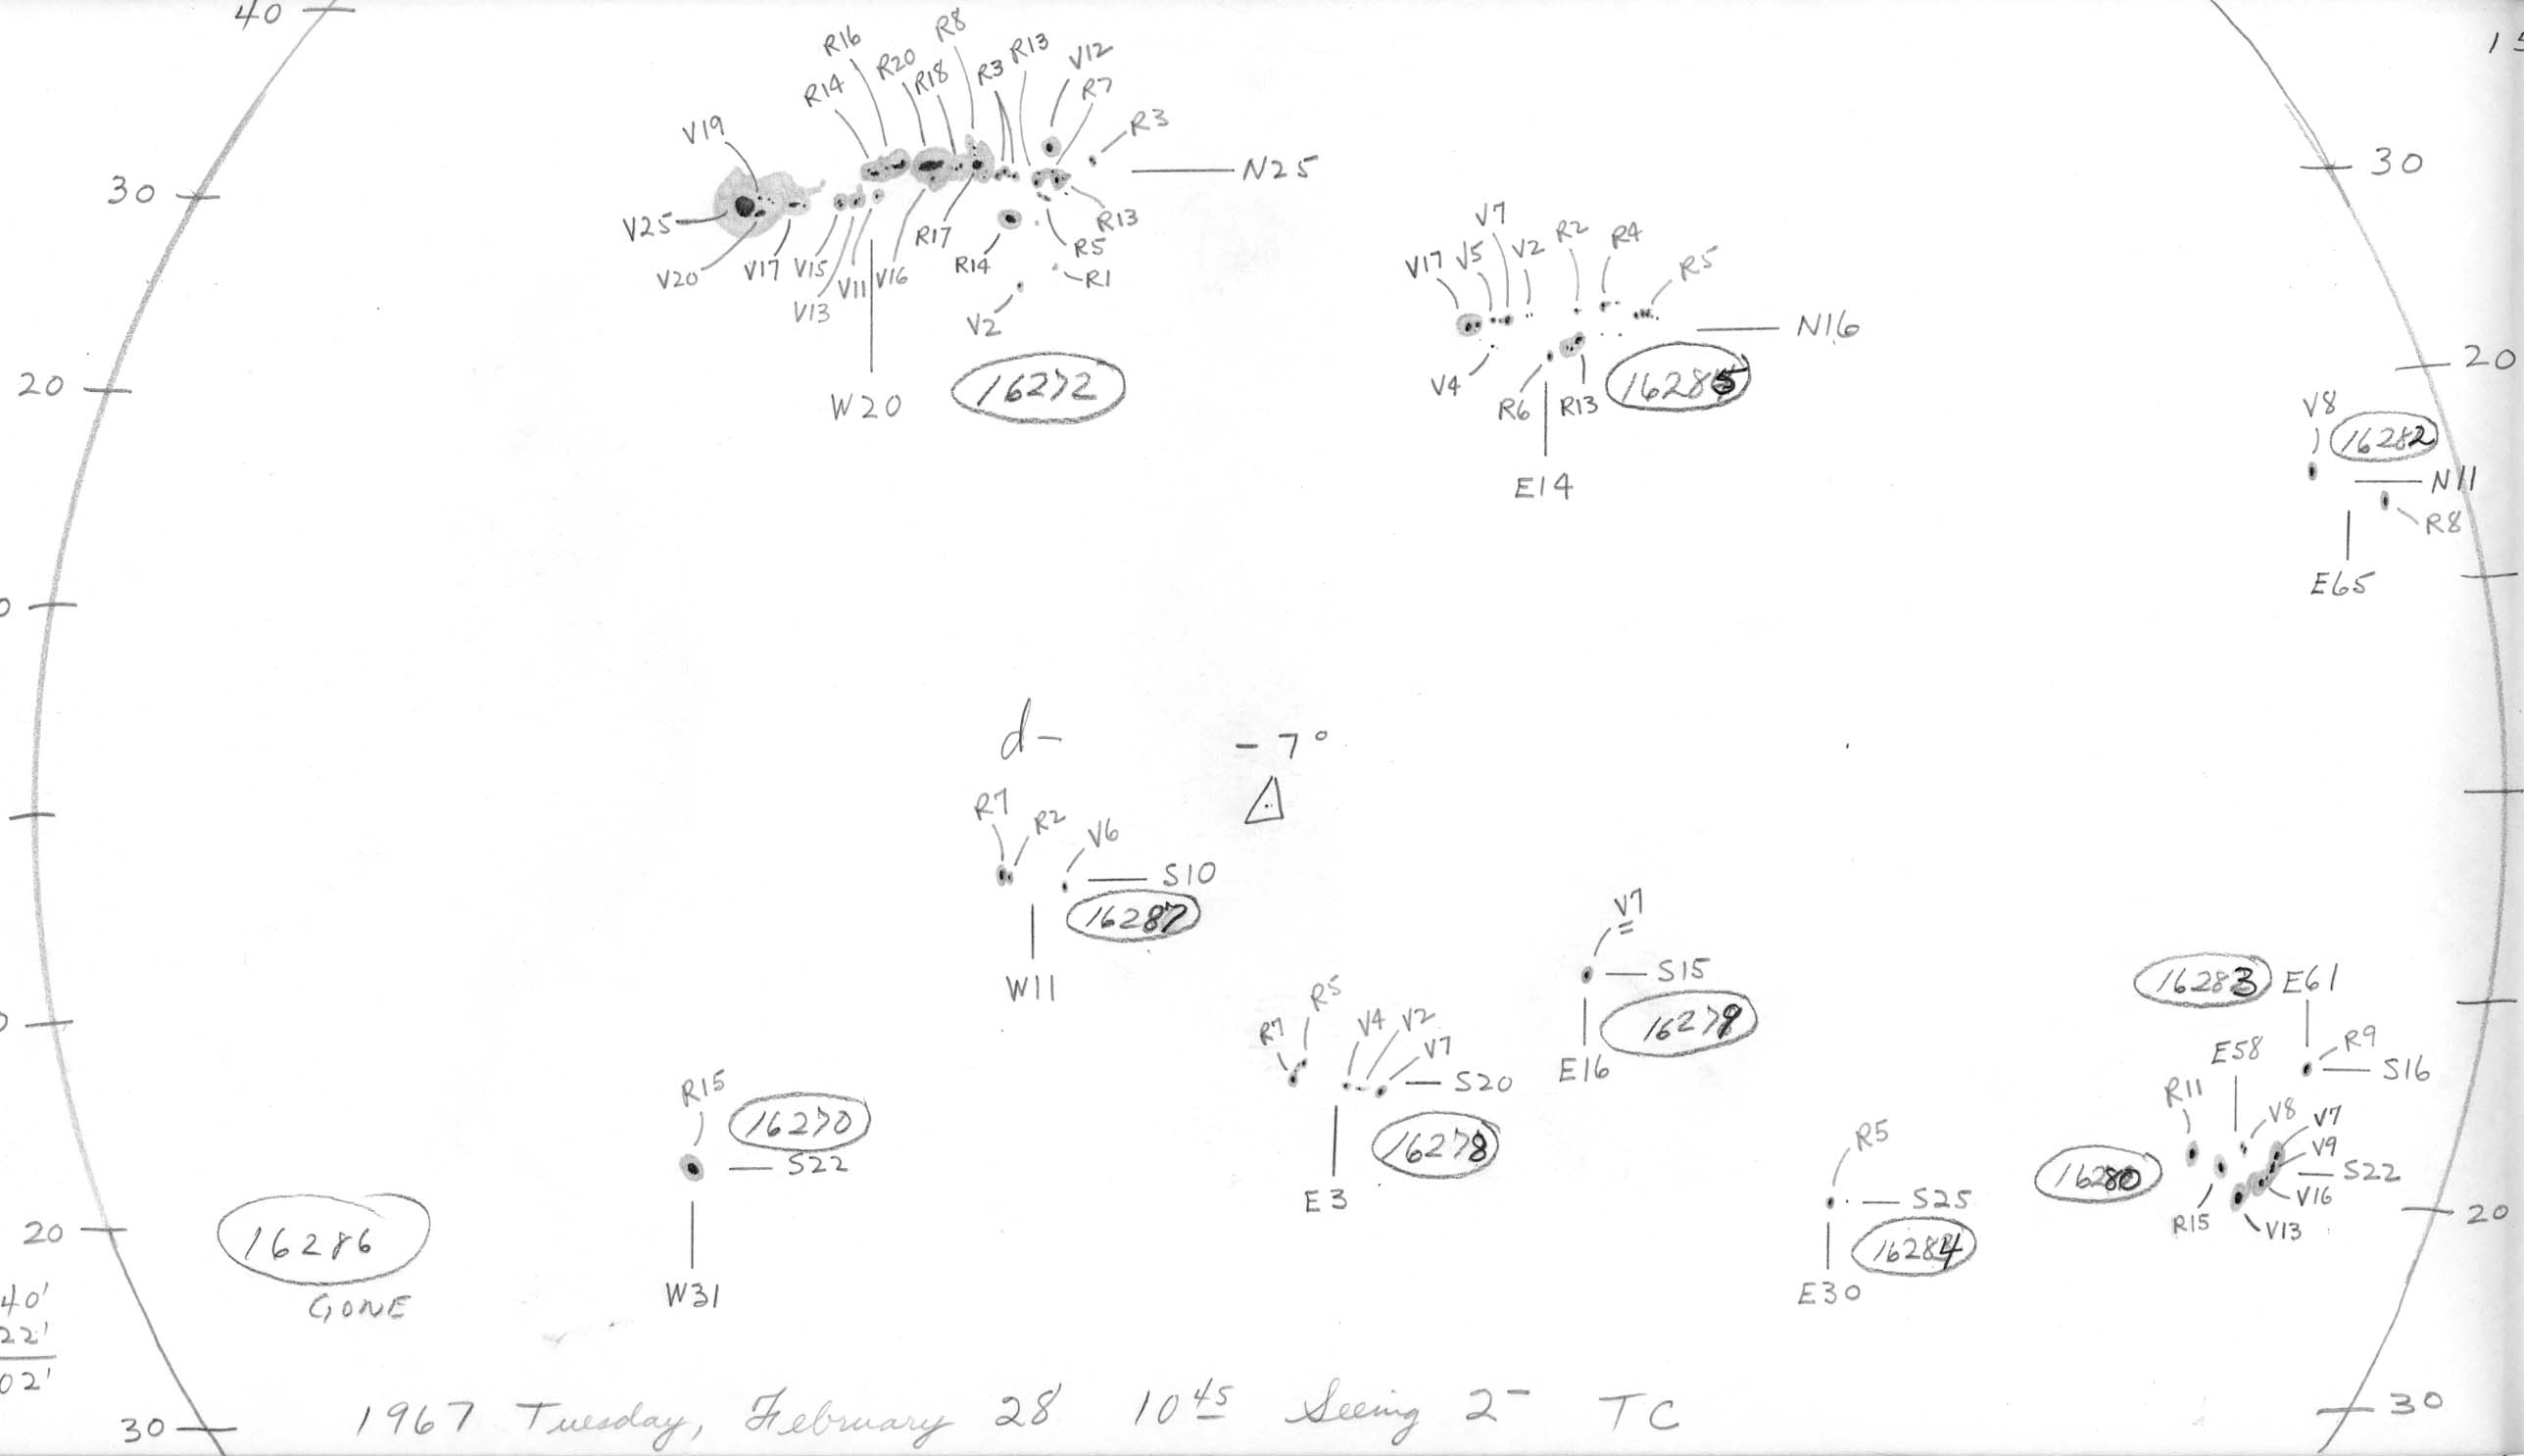 40
15
R8
R16
R20
R18
R3
R13
V12
R7
R14
R3
V19
N25
30
30
V25
V20
V17
V15
V13
V11
V16
R17
R14
R13
R5
R1
V2
W20
16272
V17
V5
V7
V2
R2
R4
R5
N16
V4
R6
R13
16285
E14
20
20
V8
16282
N11
R8
E65
d-
-7°
R7
R2
V6
S10
16287
W11
V7
S15
16279
E16
R5
R7
V4
V2
V7
S20
16278
E3
16283
E61
R9
S16
E58
R11
V8
V7
V9
S22
V16
V13
R15
16280
R15
16270
S22
W31
R5
S25
16284
E30
20
20
16286
GONE
40'
22'
02'
30
30
1967 Tuesday, February 28 10 45 Seeing 2- TC